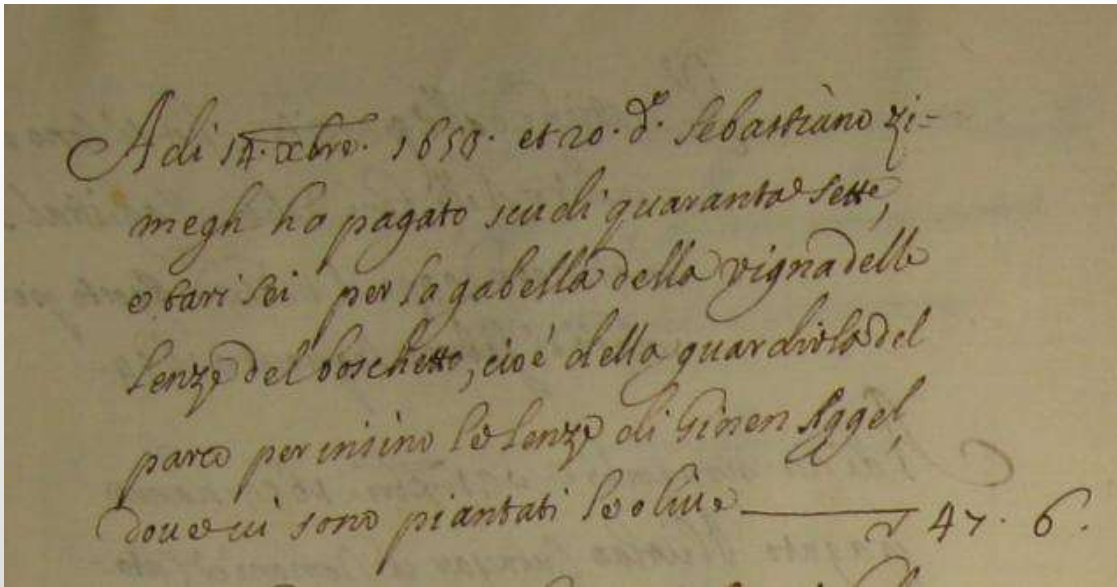 A di 14. xbre. 1658. et 20. d.o Sebastiano Zi=
megh ho pagato scudi quaranta sette,
e tari sei per la gabella della vigna delle
lenze del boschetto, cioè della guardiola del
parco per insino le lenze di Ginen Aggel,
dove vi sono piantati le olive 47. 6.